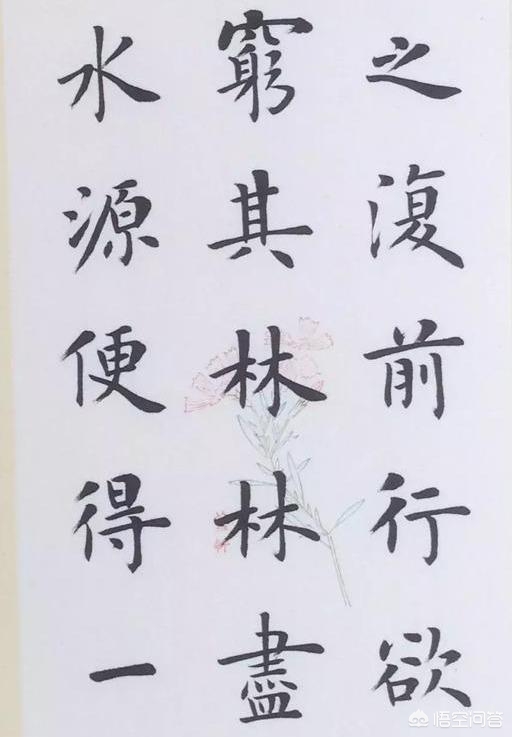 之復前行欲
窮其林林盡
水源便得一
悟空问答